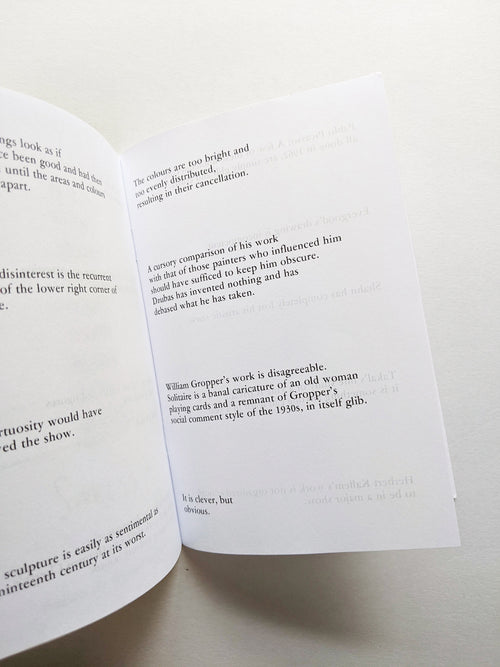 ngs look as if
ce been good and had then
until the areas and colours
apart.
disinterest is the recurrent
of the lower right corner of
e.
rtuosity would have
ed the show.
sculpture is easily as sentimental as
nineteenth century at its worst.
The colours are too bright and
too evenly distributed,
resulting in their cancellation.
A cursory comparison of his work
with that of those painters who influenced him
should have sufficed to keep him obscure.
Drabas has invented nothing and has
debased what he has taken.
William Gropper's work is disagreeable.
Solitaire is a banal caricature of an old woman
playing cards and a remnant of Gropper's
social comment style of the 1930s, in itself glib.
It is clever, but
obvious.